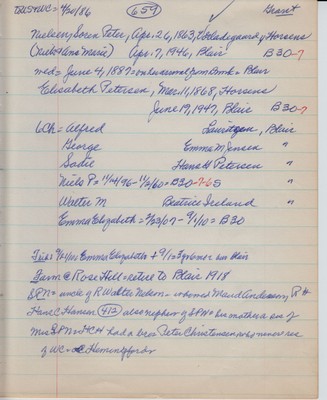 TRISNWC = 4/30/86 659 Grant
Nielsen, Soren Peter, Apr. 26, 1863, Horsens
(Niels & Ana Marie) Apr. 7, 1946, Blair B30-7
md = June 4, 1887 = on Blair
Elisabeth Petersen, Mar. 11, 1868, Horsens
June 19, 1947, Blair B30-7
6Ch = Alfred Lauritzen, Blair
George Emma M Jensen "
Sadie Hans H Petersen "
Niels P = 11/24/96 - 1/2/60 = B30-7-65 "
Walter M Beatrice Ireland "
Emma Elizabeth = 2/23/07 - 9/1/10 = B30
Emma Elizabeth + 9/1 = 3 yrs 6 mos Blair
Farm @ Rose Hill = retire to Blair 1918
SPN = uncle of R Walter Nelson = who md Maud Anderson, R H
Hans C Hansen (412) also nephew of SPN = his mother a sis of
Mrs SPN = HCH had a bro Peter Christensen who never res
of WC = @ Hemingford